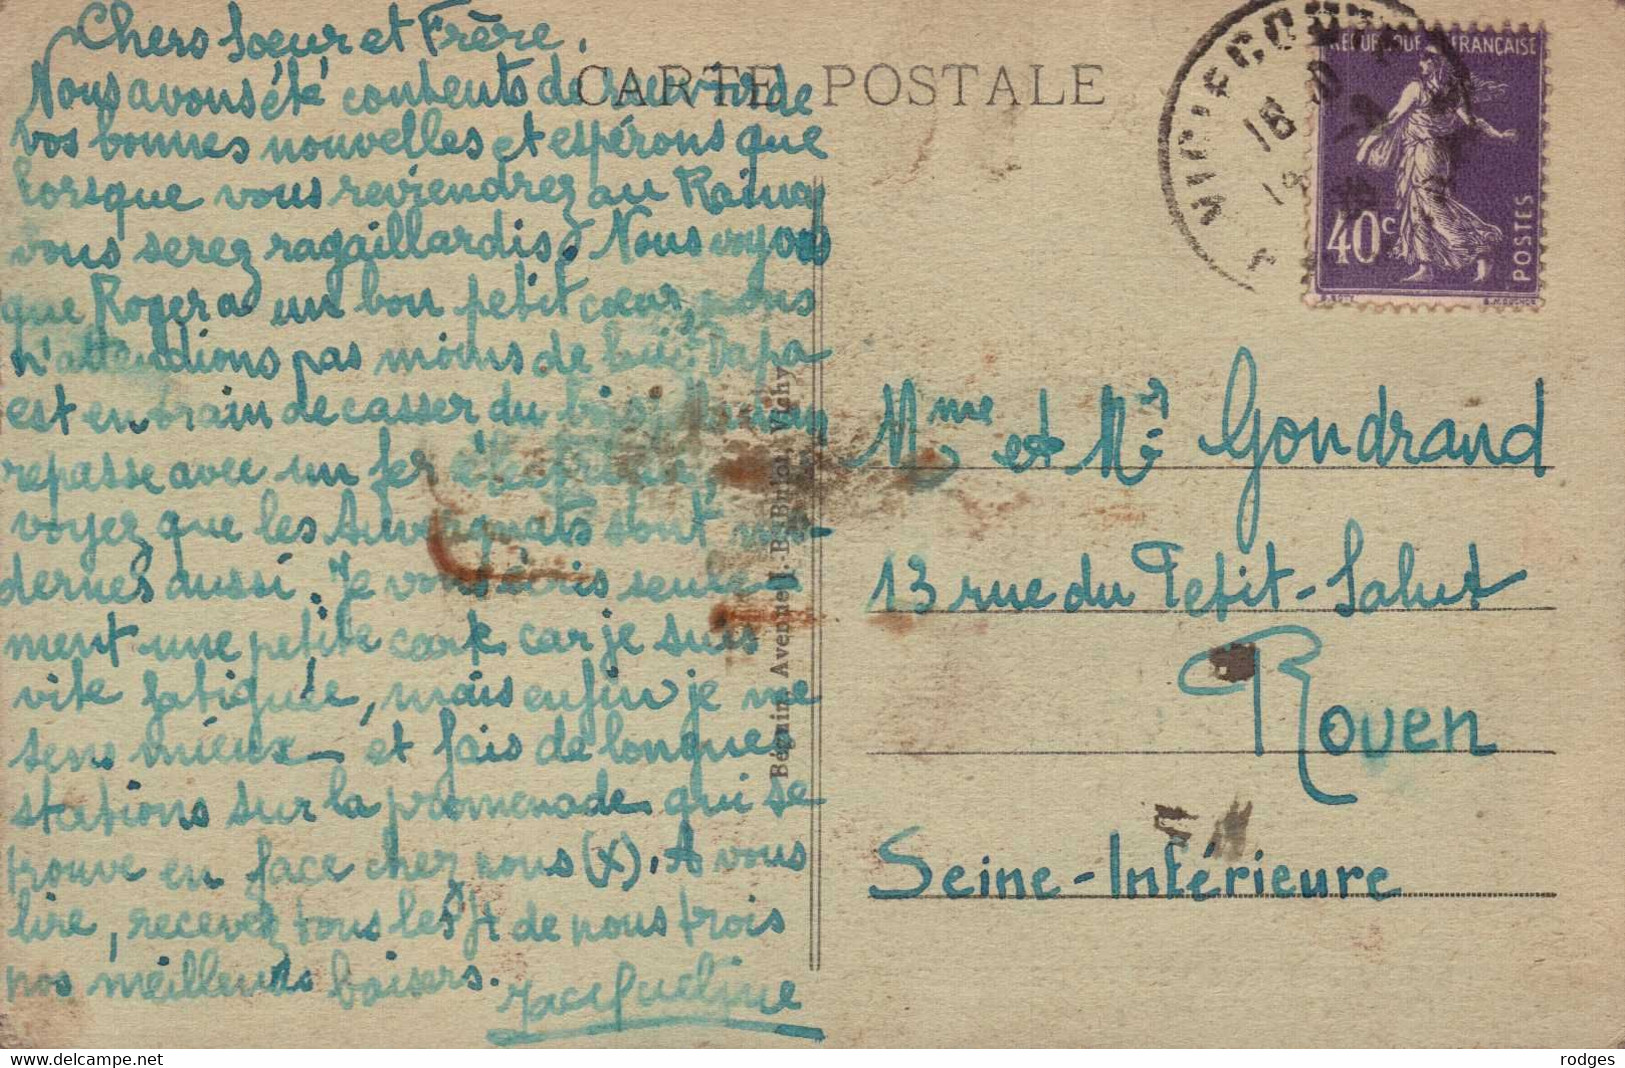 Chers Soeur et Frère,
Nous avons été contents de recevoir de
vos bonnes nouvelles et espérons que
lorsque vous reviendrez au Raincy
vous serez ragaillardis. Nous voyons
que Roger a un bon petit coeur, nous
n'attendions pas moins de lui. Papa
est en train de casser du bois, Maman
repasse avec un fer électrique,
voyez que les Auvergnats sont mo-
dernes aussi. Je vous écris seule-
ment une petite carte car je suis
vite fatiguée, mais enfin je me
sens mieux et fais de longues
stations sur la promenade qui se
trouve en face chez nous (X). A vous
lire, recevez tous les 4 de nous trois
nos meilleurs baisers.
Jacqueline
CARTE POSTALE
Béguin, Avenue Vichy
18
REPUBLIQUE FRANÇAISE
40c
POSTES
Mme et Mr Gondrand
13 rue du Petit-Salut
Rouen
Seine-Inférieure
delcampe.net
rodges